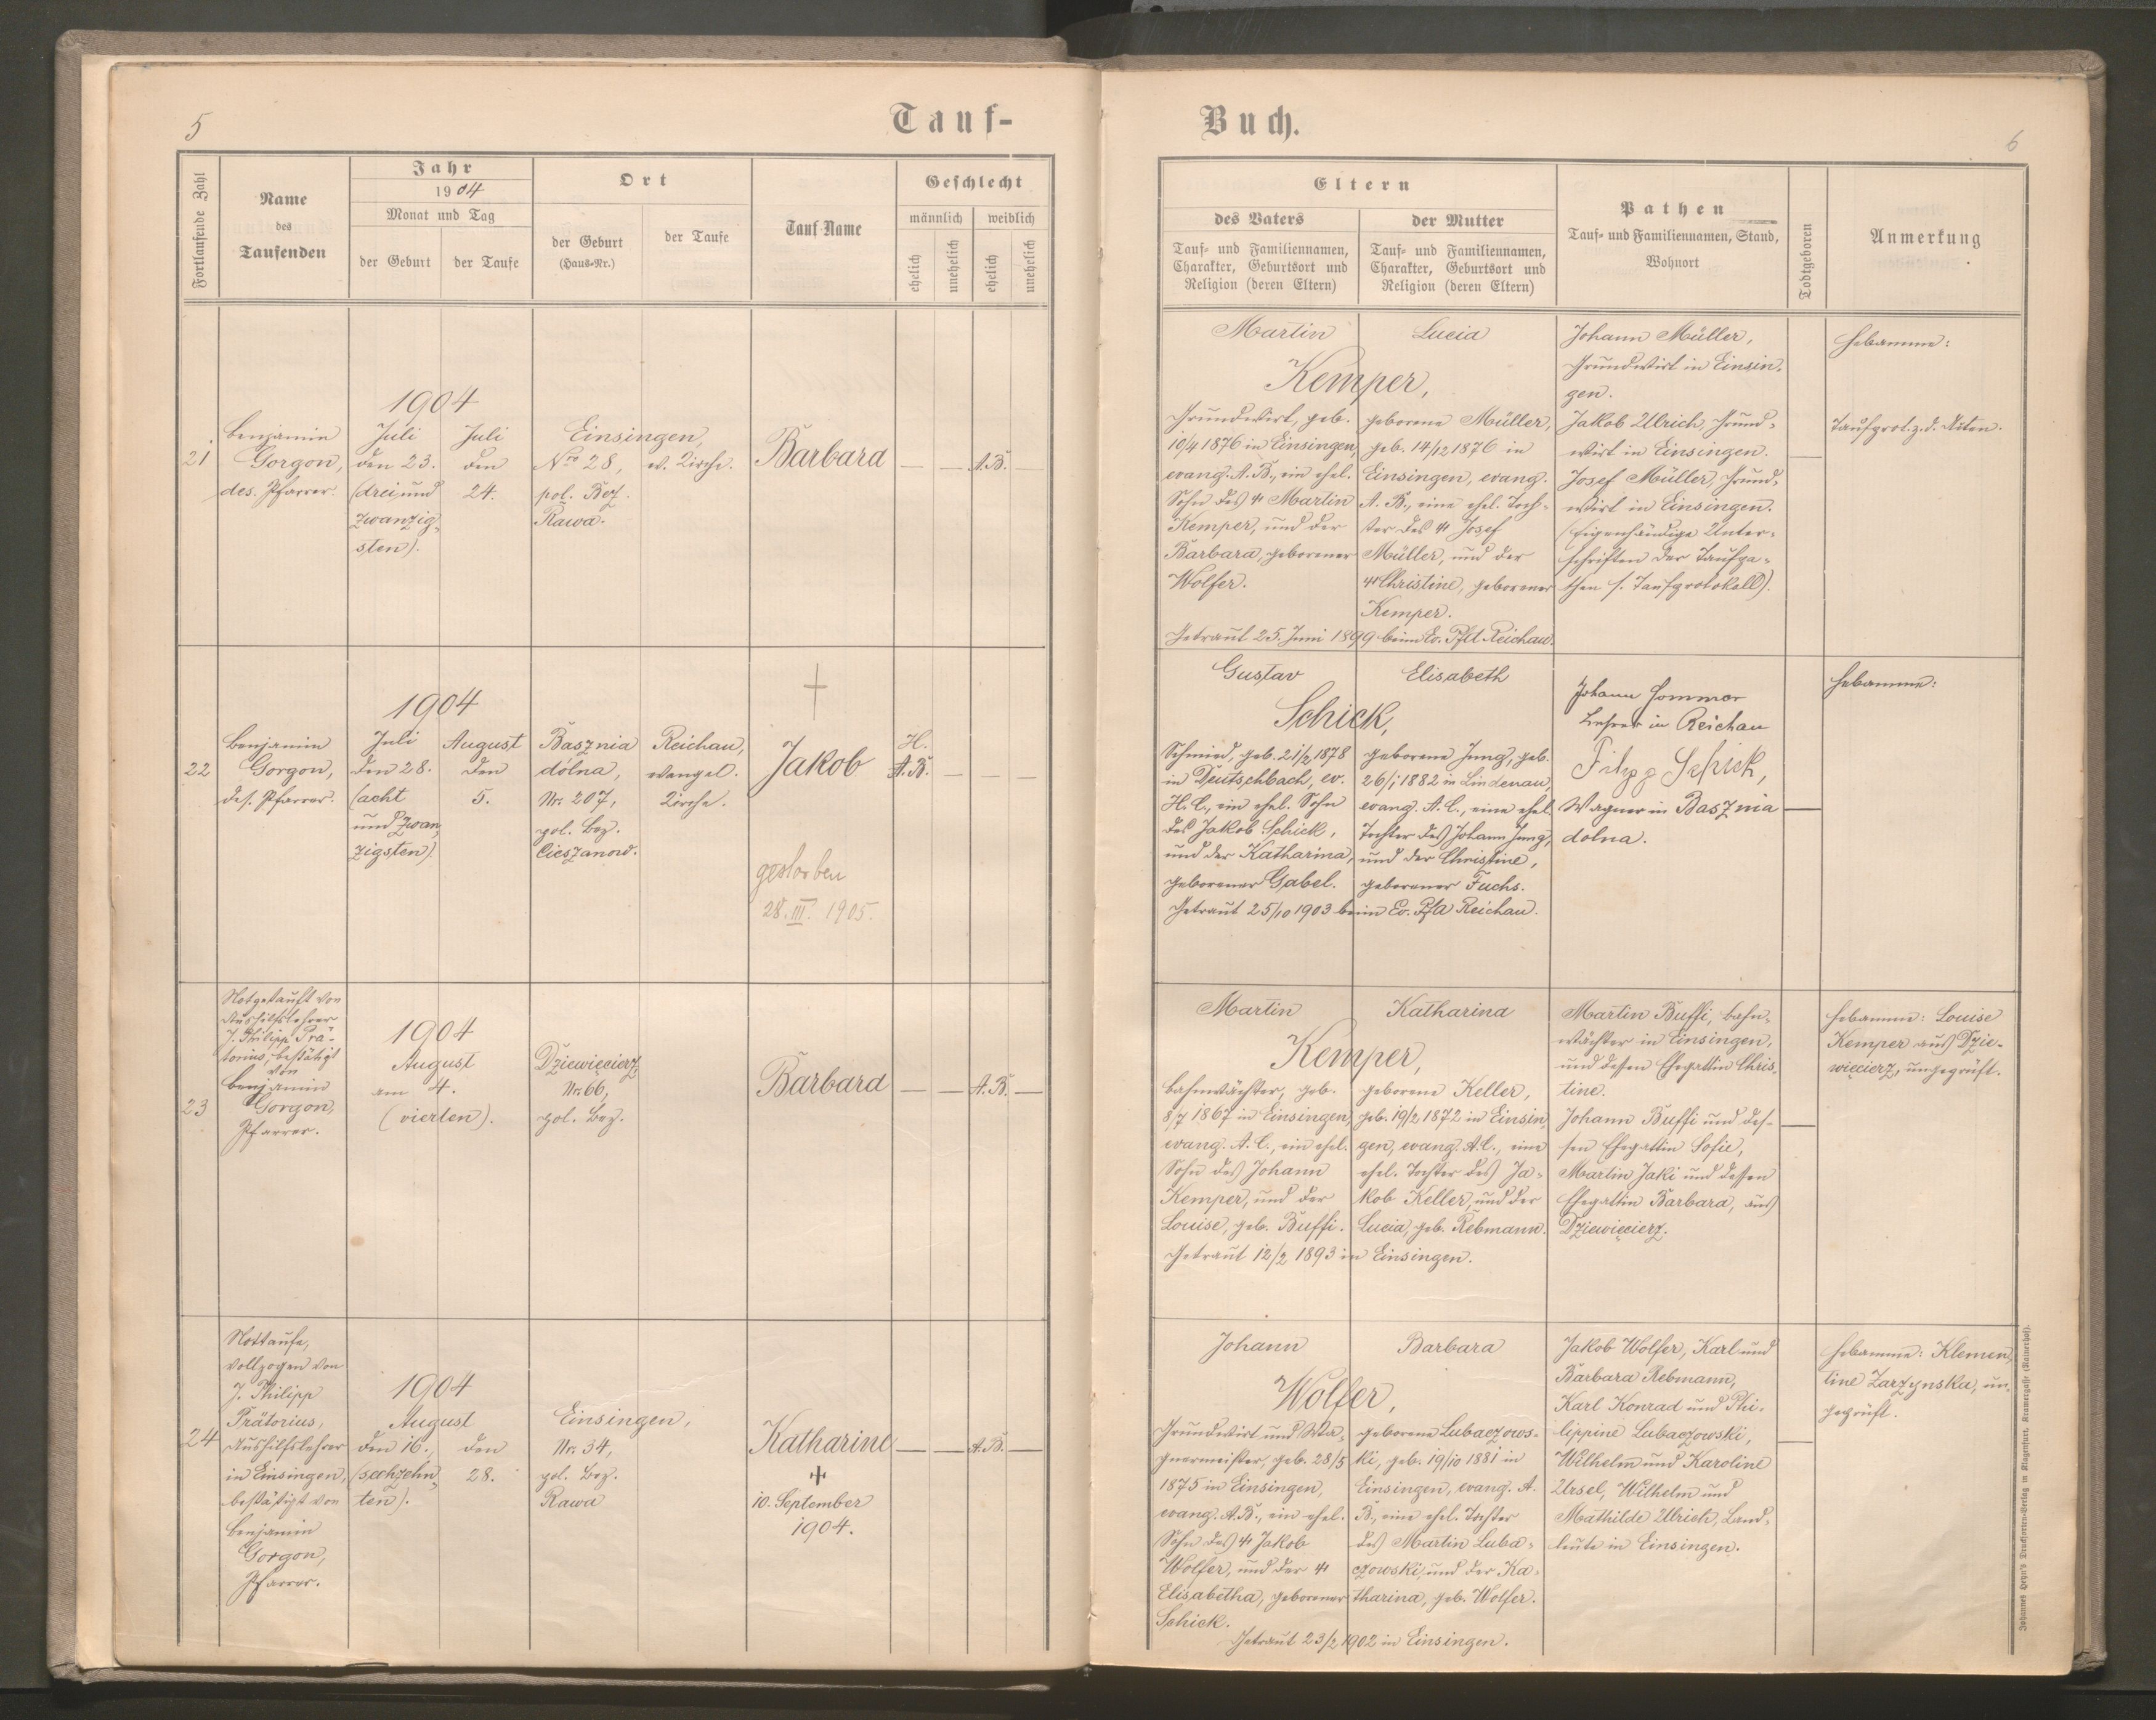 5
Tauf-
Fortlaufende Zahl
Name
des
Taufenden
Jahr
1904
Monat und Tag
der Geburt
der Taufe
Ort
der Geburt
(Haus-Nr.)
der Taufe
Tauf-Name
Geschlecht
männlich
weiblich
ehelich
unehelich
ehelich
unehelich
21
Benjamin
Gorgon,
des. Pfarrer.
1904
Juli
den 23.
(drei und
zwanzig-
sten).
Juli
den
24.
Einsingen,
Nro 28,
pol. Bez.
Rawa.
ev. Kirche.
Barbara
— — A.B. —
22
Benjamin
Gorgon,
des. Pfarrer.
1904
Juli
den 28.
(acht
und zwan
zigsten).
August
den
5.
Basznia
dólna,
Nr. 207,
pol. Bez.
Cieszanow.
Reichau,
evangel.
Kirche.
Jakob
gestorben
28. III. 1905.
H.
A.B. — — —
23
Notgetauft von
Aushilfslehrer
J. Philipp Prä-
torius, bestätigt
von
Benjamin
Gorgon,
Pfarrer.
1904
August
am 4.
(vierten).
Dziewięcierz,
Nr. 66,
pol. Bez.
Barbara
— — A.B. —
24
Nottaufe,
vollzogen von
J. Philipp
Prätorius,
Aushilfslehrer
in Einsingen,
bestätigt von
Benjamin
Gorgon,
Pfarrer.
1904
August
den 16.,
(sechzehn
ten).
den
28.
Einsingen,
Nr. 34,
pol. Bez.
Rawa
Katharine
✝
10. September
1904.
— — A.B. —
Buch.
6
Eltern
des Vaters
Tauf- und Familiennamen,
Charakter, Geburtsort und
Religion (deren Eltern)
der Mutter
Tauf- und Familiennamen,
Charakter, Geburtsort und
Religion (deren Eltern)
Pathen
Tauf- und Familiennamen, Stand,
Wohnort
Todtgeboren
Anmerkung
Martin
Lucia
Kemper,
Grundwirt, geb.
10/4 1876 in Einsingen,
evang. A.B., ein ehel.
Sohn des ✝ Martin
Kemper, und der
Barbara, geborener
Wolfer.
geborene Müller,
geb. 14/12 1876 in
Einsingen, evang.
A. B., eine ehel. Toch-
ter des ✝ Josef
Müller, und der
✝ Christine, geborener
Kemper.
Getraut 25. Juni 1899 beim Ev. Pfd. Reichau.
Johann Müller,
Grundwirt in Einsin-
gen.
Jakob Ulrich, Grund-
wirt in Einsingen.
Josef Müller, Grund-
wirt in Einsingen.
(Eigenhändige Unter-
schriften der Taufpa-
then s. Taufprotokoll).
Hebamme:
Taufprot. z. d. Akten.
Gustav
Elisabeth
Schick,
Schmied, geb. 21/2 1878
in Deutschbach, ev.
H. C., ein ehel. Sohn
des Jakob Schick,
und der Katharina,
geborener Gabel.
geborene Jung, geb.
26/1 1882 in Lindenau,
evang. A. C., eine ehel.
Tochter des Johann Jung,
und der Christine,
geborener Fuchs.
Getraut 25/10 1903 beim Ev. PfA Reichau.
Johann Sommer
Lehrer in Reichau
Filipp Schick,
Wagner in Basznia
dolna.
Hebamme:
Martin
Katharina
Kemper,
Bahnwächter, geb.
8/7 1867 in Einsingen,
evang. A. C., ein ehel.
Sohn des Johann
Kemper, und der
Louise, geb. Buffi.
geborene Keller,
geb. 19/2 1872 in Einsin-
gen, evang. A.C., eine
ehel. Tochter des Ja-
kob Keller, und der
Lucia, geb. Rebmann.
Getraut 12/2 1893 in Einsingen.
Martin Buffi, Bahn-
wächter in Einsingen,
und dessen Ehegattin Chris-
tine.
Johann Buffi und des-
sen Ehegattin Sofie,
Martin Jaki und dessen
Ehegattin Barbara, aus
Dziewięcierz.
Hebamme: Louise
Kemper aus Dzie-
więcierz, ungeprüft.
Johann
Barbara
Wolfer,
Grundwirt und Wa-
gnermeister, geb. 28/5
1875 in Einsingen,
evang. A.B., ein ehel.
Sohn des ✝ Jakob
Wolfer, und der ✝
Elisabetha, geborener
Schick.
geborene Lubaczows-
ki, geb. 19/10 1881 in
Einsingen, evang. A.
B., eine ehel. Tochter
des Martin Luba-
czowski, und der Ka-
tharina, geb. Wolfer.
Getraut 23/2 1902 in Einsingen.
Jakob Wolfer, Karl und
Barbara Rebmann,
Karl Konrad und Phi-
lippine Lubaczowski,
Wilhelm und Karoline
Ursel, Wilhelm und
Mathilde Ulrich, Land-
leute in Einsingen.
Hebamme: Klemen-
tine Zarzynska, un-
geprüft.
Johannes Heyn's Drucksorten-Verlag in Klagenfurt, Kramergasse (Rainerhof).